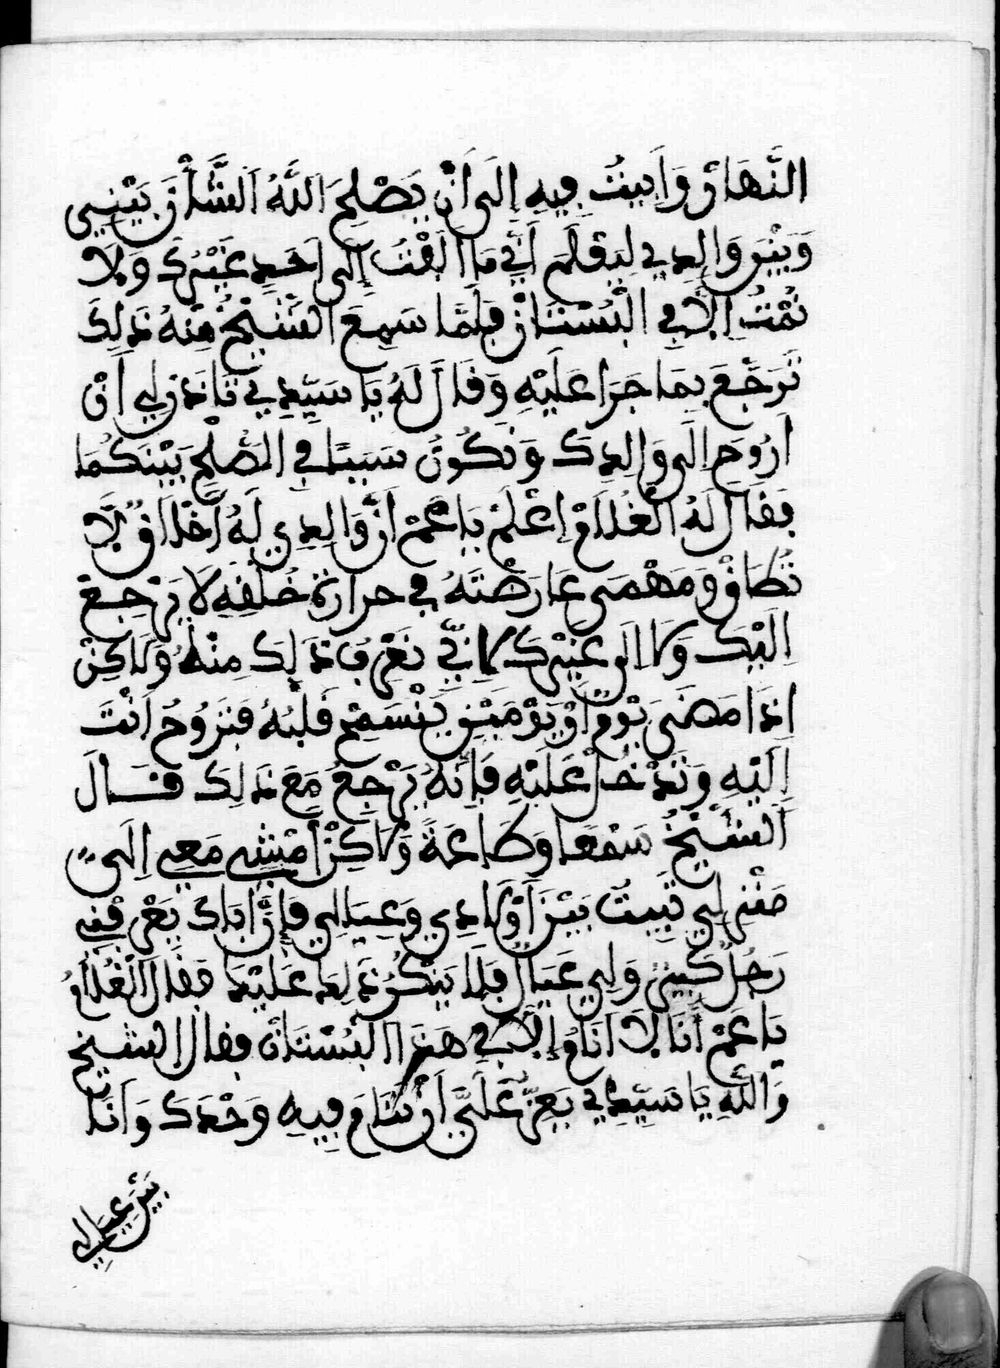 النَّهَارْ وَاَبِيتُ فِيهِ اِلَى اَنْ يَصْلِحَ اَللَّهُ اَلشَّأْنَ بَيْنِي
وَبَيْنَ وَالِدِي لِيَقْلَمَ اَنِّي مَا اَلِفْتُ اِلَى اَحَدٍ غَيْرِكَ وَلَا
نُمْتُ اِلَّا فِي الْبُسْتَانْ فَلَمَّا سَمِعَ الشَّيْخُ مِنْهُ ذَلِكَ
تَرَجَّعَ بِمَا جَرَا عَلَيْهِ وَقَالَ لَهُ يَا سَيِّدِي تَاذَنْ لِي اَنْ
اَرُوحَ اِلَى وَالِدِكَ وَنَكُونُ سَبَبًا فِي الصُّلْحِ بَيْنَكُمَا
فَقَالَ لَهُ الْغُلَامْ اِعْلَمْ يَا عَمْ اَنَّ وَالِدِي لَهُ اَخْلَاقٌ لَا
تُطَاقْ وَمَهْمَى عَارَضْتَهُ فِي حرَارَةِ خُلْقِهِ لَا يَرْجِعْ
اِلَيْكَ وَلَا اِلَى غَيْرِكَ لِاَنِّي نَعْرِفُ ذَلِكَ مِنْهُ وَلَاكِنْ
اِذَا مَضَى يَوْمٌ اَوْ يَوْمَيْنِ يَنْسَمِحْ قَلْبُهُ فَتَرُوحُ اَنْتَ
اِلَيْهِ وَتَدْخُلْ عَلَيْهِ فَاِنَّهُ يَرْجِعُ مَعَ ذَلِكَ قَالَ
اَلشَّيْخُ سَمْعًا وَطَاعَةً وَلَاكِنْ اَمْشِي مَعِي اِلَى
مَنْزِلِي تَبِيتُ بَيْنَ اَوْلَادِي وَعِيَالِي فَاِنَّ اَبَاكَ يَعْرِفْنِي
رَجُلٌ كَبِيرٌ وَلِي عِيَالٌ فَلَا يَنْكُرْ ذَلِكَ عَلَيْنَا فَقَالَ الْغُلَامُ
يَا عَمْ اَنَا لَا اَنَامُ اِلَّا فِي هَذَا الْبُسْتَانْ فقال الشيخ
وَاللَّهِ يَا سَيِّدِي يَعِزُّ عَلَيَّ اَنْ تَنَامَ فِيهِ وَحْدَكَ وَاَنَا
بَيْنَ عِيَالِي